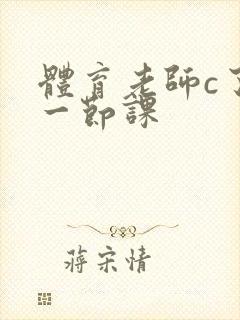 體育老師c了
一節課
蔣宋情